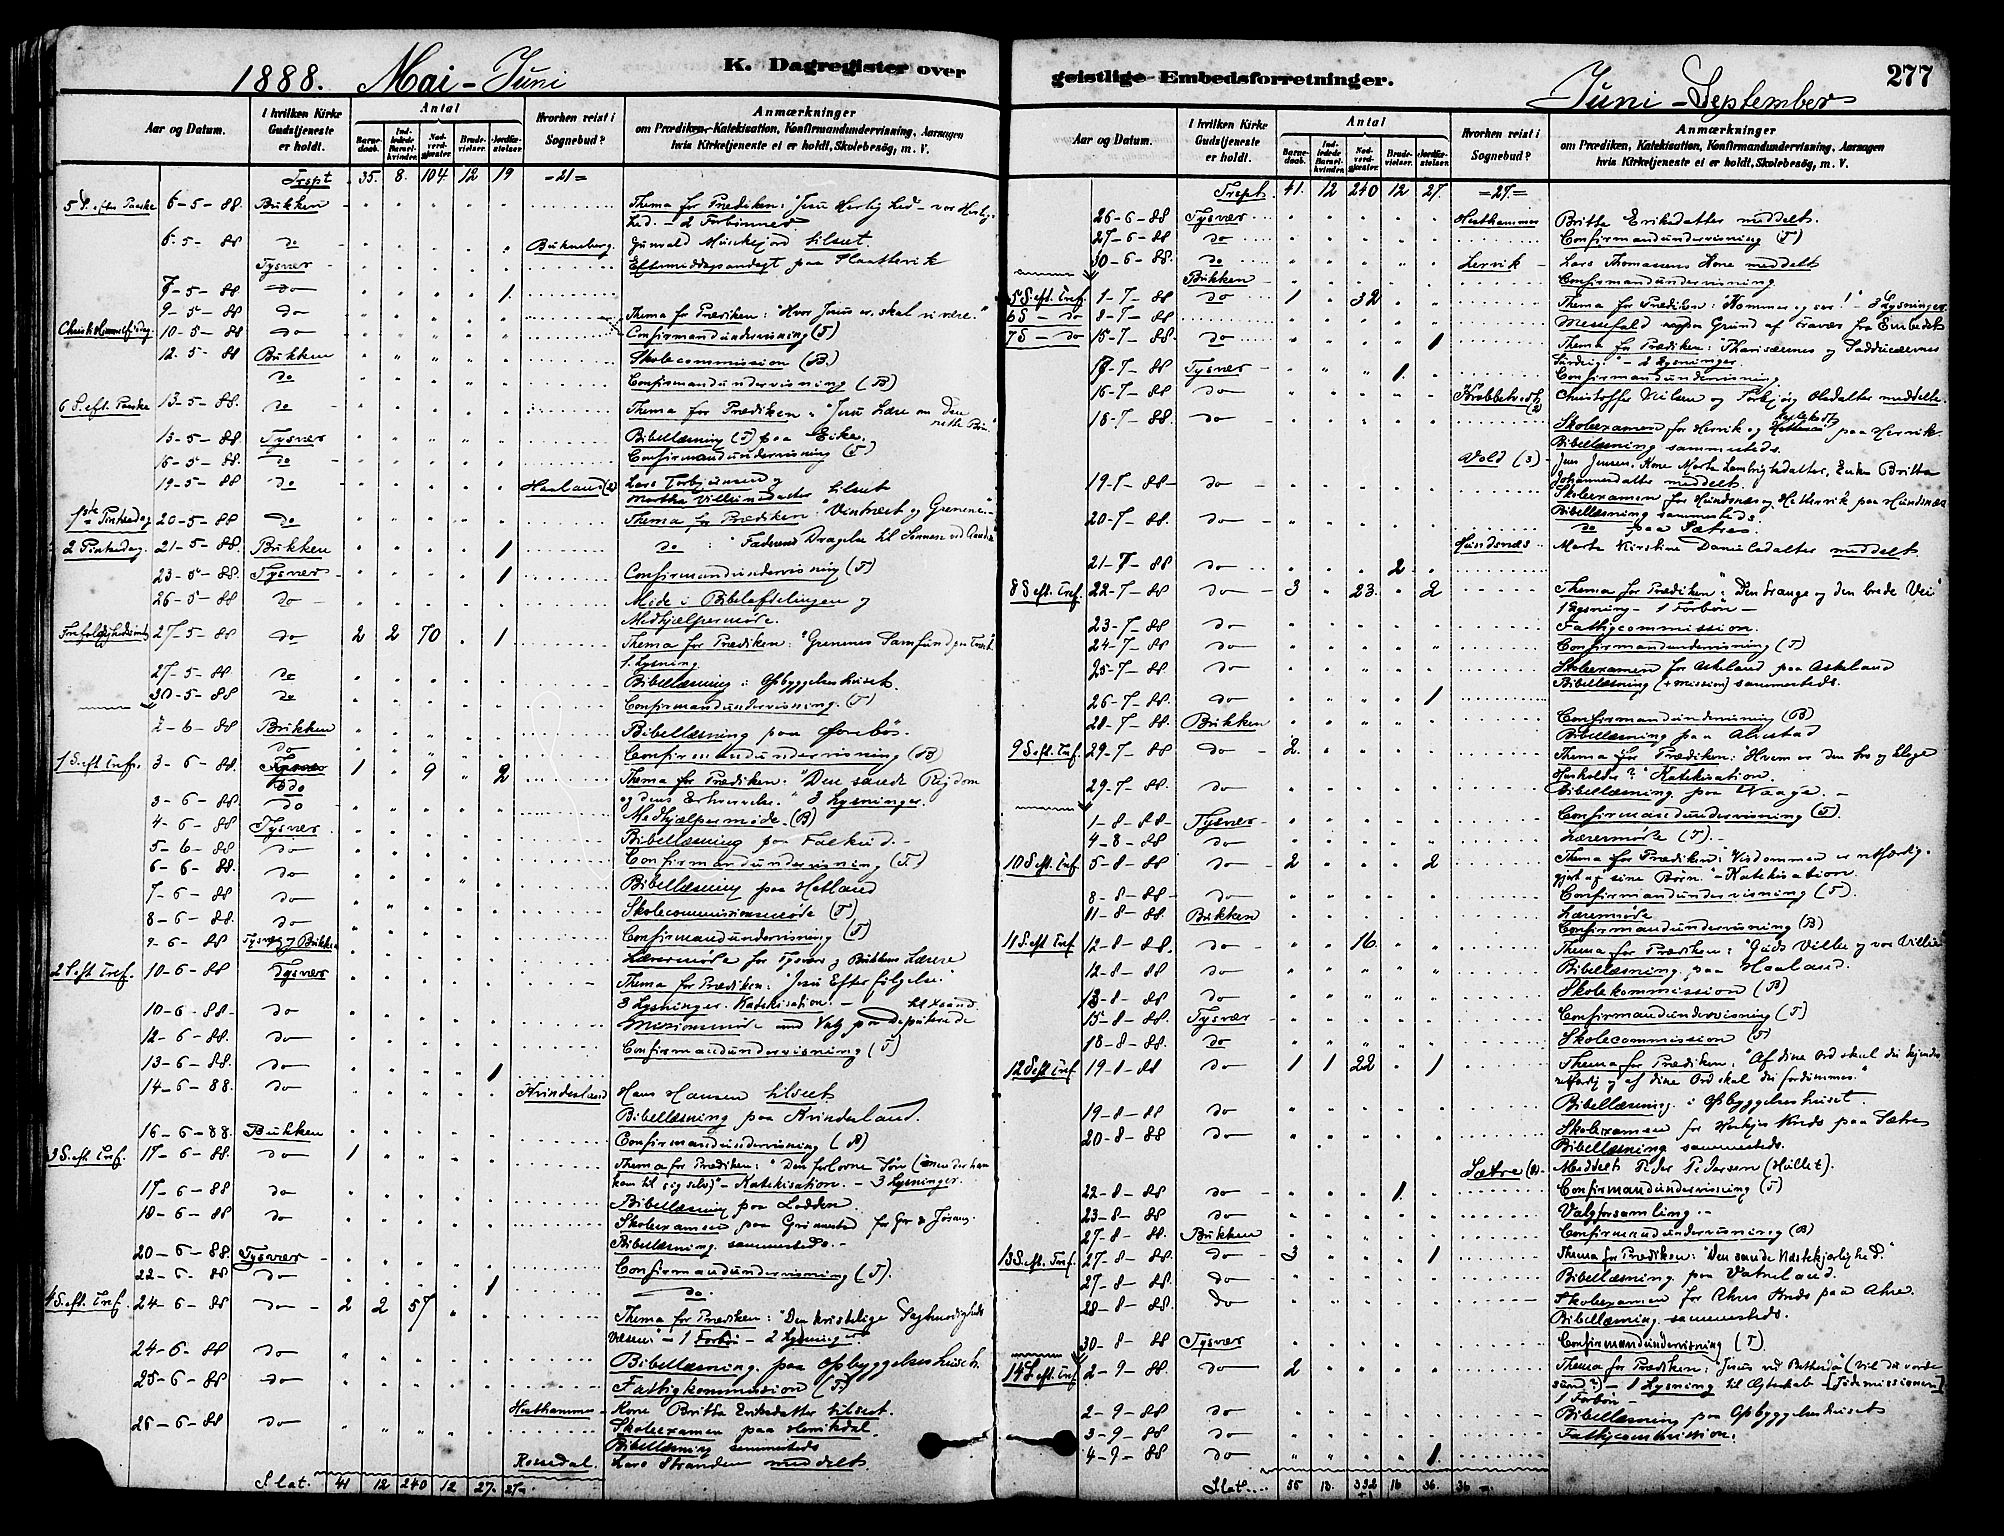 1888. Mai - Juni
K. Dagregister over
Aar og Datum.
I hvilken Kirke Gudstjeneste er holdt.
Antal
Barnedaab.
Indledede Barselkvinder.
Nadverdgjæster.
Brudevielser.
Jordfæstelser.
Hvorhen reist i Sognebud?
Anmærkninger
om Prædiken, Katekisation, Konfirmandundervisning, Aarsagen
hvis Kirketjeneste ei er holdt, Skolebesøg, m. V.
Trspt 35. 8. 104. 12 19 =21=
5 S. efter Paaske 6-5-88. Bukken Thema for Prædiken: "Jesu Herlighed - vor Herlighed. - 2 Forbønner
6-5-88 do Bukneberg. Gunvald tilseet.
Tysvær Eftermiddagsandagt paa Slaattevik
7-5-88 do 1.
9-5-88 do Thema for Prædiken: "Hvor Jesus er, skal vi være."
Christi Himmelfartsdag 10-5-88 do Confirmandundervisning (T)
12-5-88 Bukken Skolecommission (B.)
do Confirmandundervisning (B)
6 S. eft. Paaske 13-5-88. do Thema for Prædiken: "Jesu Lære om den rette Bøn"
13-5-88 Tysvær Bibellæsning (T) paa Eike.
16-5-88. do Confirmandundervisning (T)
19-5-88 do Haaland (2) Lars Torbjørnsen og
Martha Villumsdatter tilseet
1ste Pintsedag 20-5-88 do Thema for Prædiken: "Vintræet og Grenene"
2 Pintsedag. 21-5-88 Bukken 1 do : "Faderens Dragelse til Sønnen ved Aanden"
23-5-88. Tysvær 1 Confirmandundervisning (T)
26-5-88 do Møde i Bibelafdelingen og
Medhjælpermøde.
27-5-88 do 2 2 70 1 Thema for Prædiken: "Grenenes Samfund
1. Lysning
27-5-88 do Bibellæsning i Opbyggelseshuset.
30-5-88 do Confirmandundervisning. (T)
2-6-88 Bukken Bibellæsning paa
do Confirmandundervisning (B)
1 S. eft. Tref. 3-6-88. 1 9 2 Thema for Prædiken: "Den sande Rigdom
do og dens Erhvervelse." 3 Lysninger.
3-6-88 do Medhjælpermøde. (B)
4-6-88 Tysvær Bibellæsning paa Falkeid.
5-6-88 do Confirmandundervisning (T)
6-6-88. do Bibellæsning paa Hetland
7-6-88 do Skolecommissionsmøde (T)
8-6-88. do Confirmandundervisning (T)
9-6-88 Tysvær og Bukken Lærermøde for Tysvær og Bukkens Lærere
2 S. eft. Tref. 10-6-88 Tysvær Thema for Prædiken: "Jesu Efterfølgelse."
3 Lysninger. Katekisation.
10-6-88 do Missionsmøde med Valg paa Deputerede
12-6-88 do Confirmandundervisning (T)
13-6-88. do 1
14-6-88. do Kvindesland Hans Hansen tilseet
Bibellæsning paa Kvindesland.
16-6-88. Bukken Confirmandundervisning (B)
3 S. eft. Tref. 17-6-88. do 1 Thema for Prædiken: "Den forlorne Søn (
kom til sig selv)" - Katekisation. - 3 Lysninger.
17-6-88 do Bibellæsning paa Lodden.
18-6-88 do Skoleexamen paa Grønnestad for
Bibellæsning sammesteds.
20-6-88. Tysvær Confirmandundervisning (T).
22-6-88 do 1 do
4 S. eft. Tref. 24-6-88 do 2 2 57 Thema for Prædiken: "Den kristelige
- 1 Forbøn - 2 Lysninger
24-6-88 do Bibellæsning paa Opbyggelseshuset.
25-6-88 do Fattigkommission (T)
26-6-88 do Hesthammer Kone Britta Eriksdatter tilseet.
Skoleexamen paa
Bibellæsning sammesteds
Rossedal. Lars Stranden meddelt
S. lat. 41 12 240 12 27. 27=
geistlige Embedsforretninger.
Juni - September
277
Aar og Datum.
I hvilken Kirke Gudstjeneste er holdt.
Antal
Barnedaab.
Indledede Barselkvinder.
Nadverdgjæster.
Brudevielser.
Jordfæstelser.
Hvorhen reist i Sognebud?
Anmærkninger
om Prædiken, Katekisation, Konfirmandundervisning, Aarsagen
hvis Kirketjeneste ei er holdt, Skolebesøg, m. V.
Trspt 41. 12 240 12 27. =27=
26-6-88 Tysvær Hesthammer Britta Eriksdatter meddelt.
27-6-88 do Confirmandundervisning (T)
30-6-88. do Lervik Lars Thomassens Kone meddelt
Bukken Confirmandundervisning
5 S. eft. Tref. 1-7-88 do 1 32 Thema for Prædiken: "Kommer og ser!" - Lysninger
6 S - do 8-7-88 Messefald Grund af Fravær fra Embedet
7 S - do 15-7-88. do 1 Thema for Prædiken: "Pharisæernes og Sadducæernes
Surdeig" - 2 Lysninger
17-7-88 Tysvær 1. Confirmandundervisning
16-7-88 do Krabbetvedt (2) Christoffer Nilsen og Torbjørg Oledatter meddelte.
18-7-88 do Skoleexamen for Hervik og paa Hervik
Bibellæsning sammesteds.
Vold (3) Jens Jensen, Kone Marta Lambrigtsdatter, Enken Britta
19-7-88 do Johannesdatter meddelt
Skoleexamen for Hundsnæs og Hettervik paa Hundsnæs
20-7-88 do Bibellæsning sammesteds.
do paa Sætre
Hundsnæs Marta Kirstine Danielsdatter meddelt
21-7-88 do 2
8 S eft. Tref. 22-7-88 do 3 23. 2 Thema for Prædiken: "Den trange og den brede Vei"
1 Lysning - 1 Forbøn -
23-7-88 do Fattigcommission.
24-7-88 do Confirmandundervisning (T)
25-7-88 do Skoleexamen for Askeland paa Askeland
Bibellæsning (+ Mission) sammesteds.
26-7-88 do 1
28-7-88 Bukken Confirmandundervisning (B)
Bibellæsning paa
9 S eft. Tref. 29-7-88 do 2. Thema for Prædiken: "Hvem er den tro og kloge
Husholder?" Katekisation.
29-7-88. do Bibellæsning paa Vaage. -
1-8-88- Tysvær Confirmandundervisning (T).
4-8-88 do Lærermøde (T).
10 S eft. Tref. 5-8-88 do 2 2 Thema for Prædiken: "Visdommen er retfærdig-
gjort af sine Børn." - Katekisation.
8-8-88 do Confirmandundervisning (T).
11-8-88. Bukken Lærermøde
Confirmandundervisning (B)
11 S. eft Tref 12-8-88 do 16. Thema for Prædiken: "Guds Villie og vor Villie"
12-8-88 do Bibellæsning paa Haaland.
13-8-88 do Skolekommission (B)
15-8-88. Tysvær Confirmandundervisning (T)
18-8-88. do Skolecommission (T)
12 S eft Tref 19-8-88 do 1 1 22 1 Thema for Prædiken: "Af dine Ord skal du kjendes
retfærdig og af dine Ord skal du fordømmes."
19-8-88 do Bibellæsning i Opbyggelseshuset
20-8-88 do Skoleexamen for Kreds paa Sætre
Bibellæsning sammesteds.
Sætre Meddelt Peder Pedersen (Hullet).
22-8-88 do 1. Confirmandundervisning (T)
23-8-88. do Valgforsamling. -
27-8-88. Bukken Confirmandundervisning (B)
13 S. eft. Tref. 27-8-88 do 3 1 Thema for Prædiken: "Den sande Næstekjærlighed."
27-8-88 do Bibellæsning paa Vatneland.
28-8-88 do Skoleexamen for Ahres Kreds paa Ahre.
Bibellæsning sammesteds.
30-8-88 Tysvær Confirmandundervisning (T)
14 S eft Tref 2-9-88 do 2 Thema for Prædiken: Jesus ved Bethesda (Vil du vorde
sund?) - 1 Lysning til Ægteskab [Jødemissionen]
1 Forbøn -
2-9-88 do Bibellæsning paa Opbyggelseshuset
3-9-88 do Fattigcommission.
4-9-88 do 1.
S. lat. 55 13. 332 16 36. 36